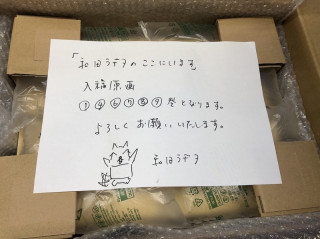 「和田ラヂヲのここにいます
入稿原画
①④⑥⑦⑧⑨巻となります。
よろしくお願いいたします。
和田ラヂヲ